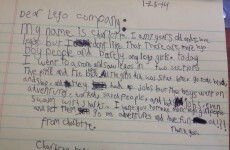 1-25-14
Dear Lego company:
My name is Charlotte. I am 7 years old and I love
legos but I don't like that there are more lego
boy people and barely any lego girls. today
I went to a store and saw legos in two sections
The girls did was sit at home, go to the beach,
and shop and they had no jobs but the boys went on
adventures worked, saved people and had jobs, even
swam with sharks. I want you to make more lego girl people
and let them go on adventures and have fun
from charlotte. Thank you.